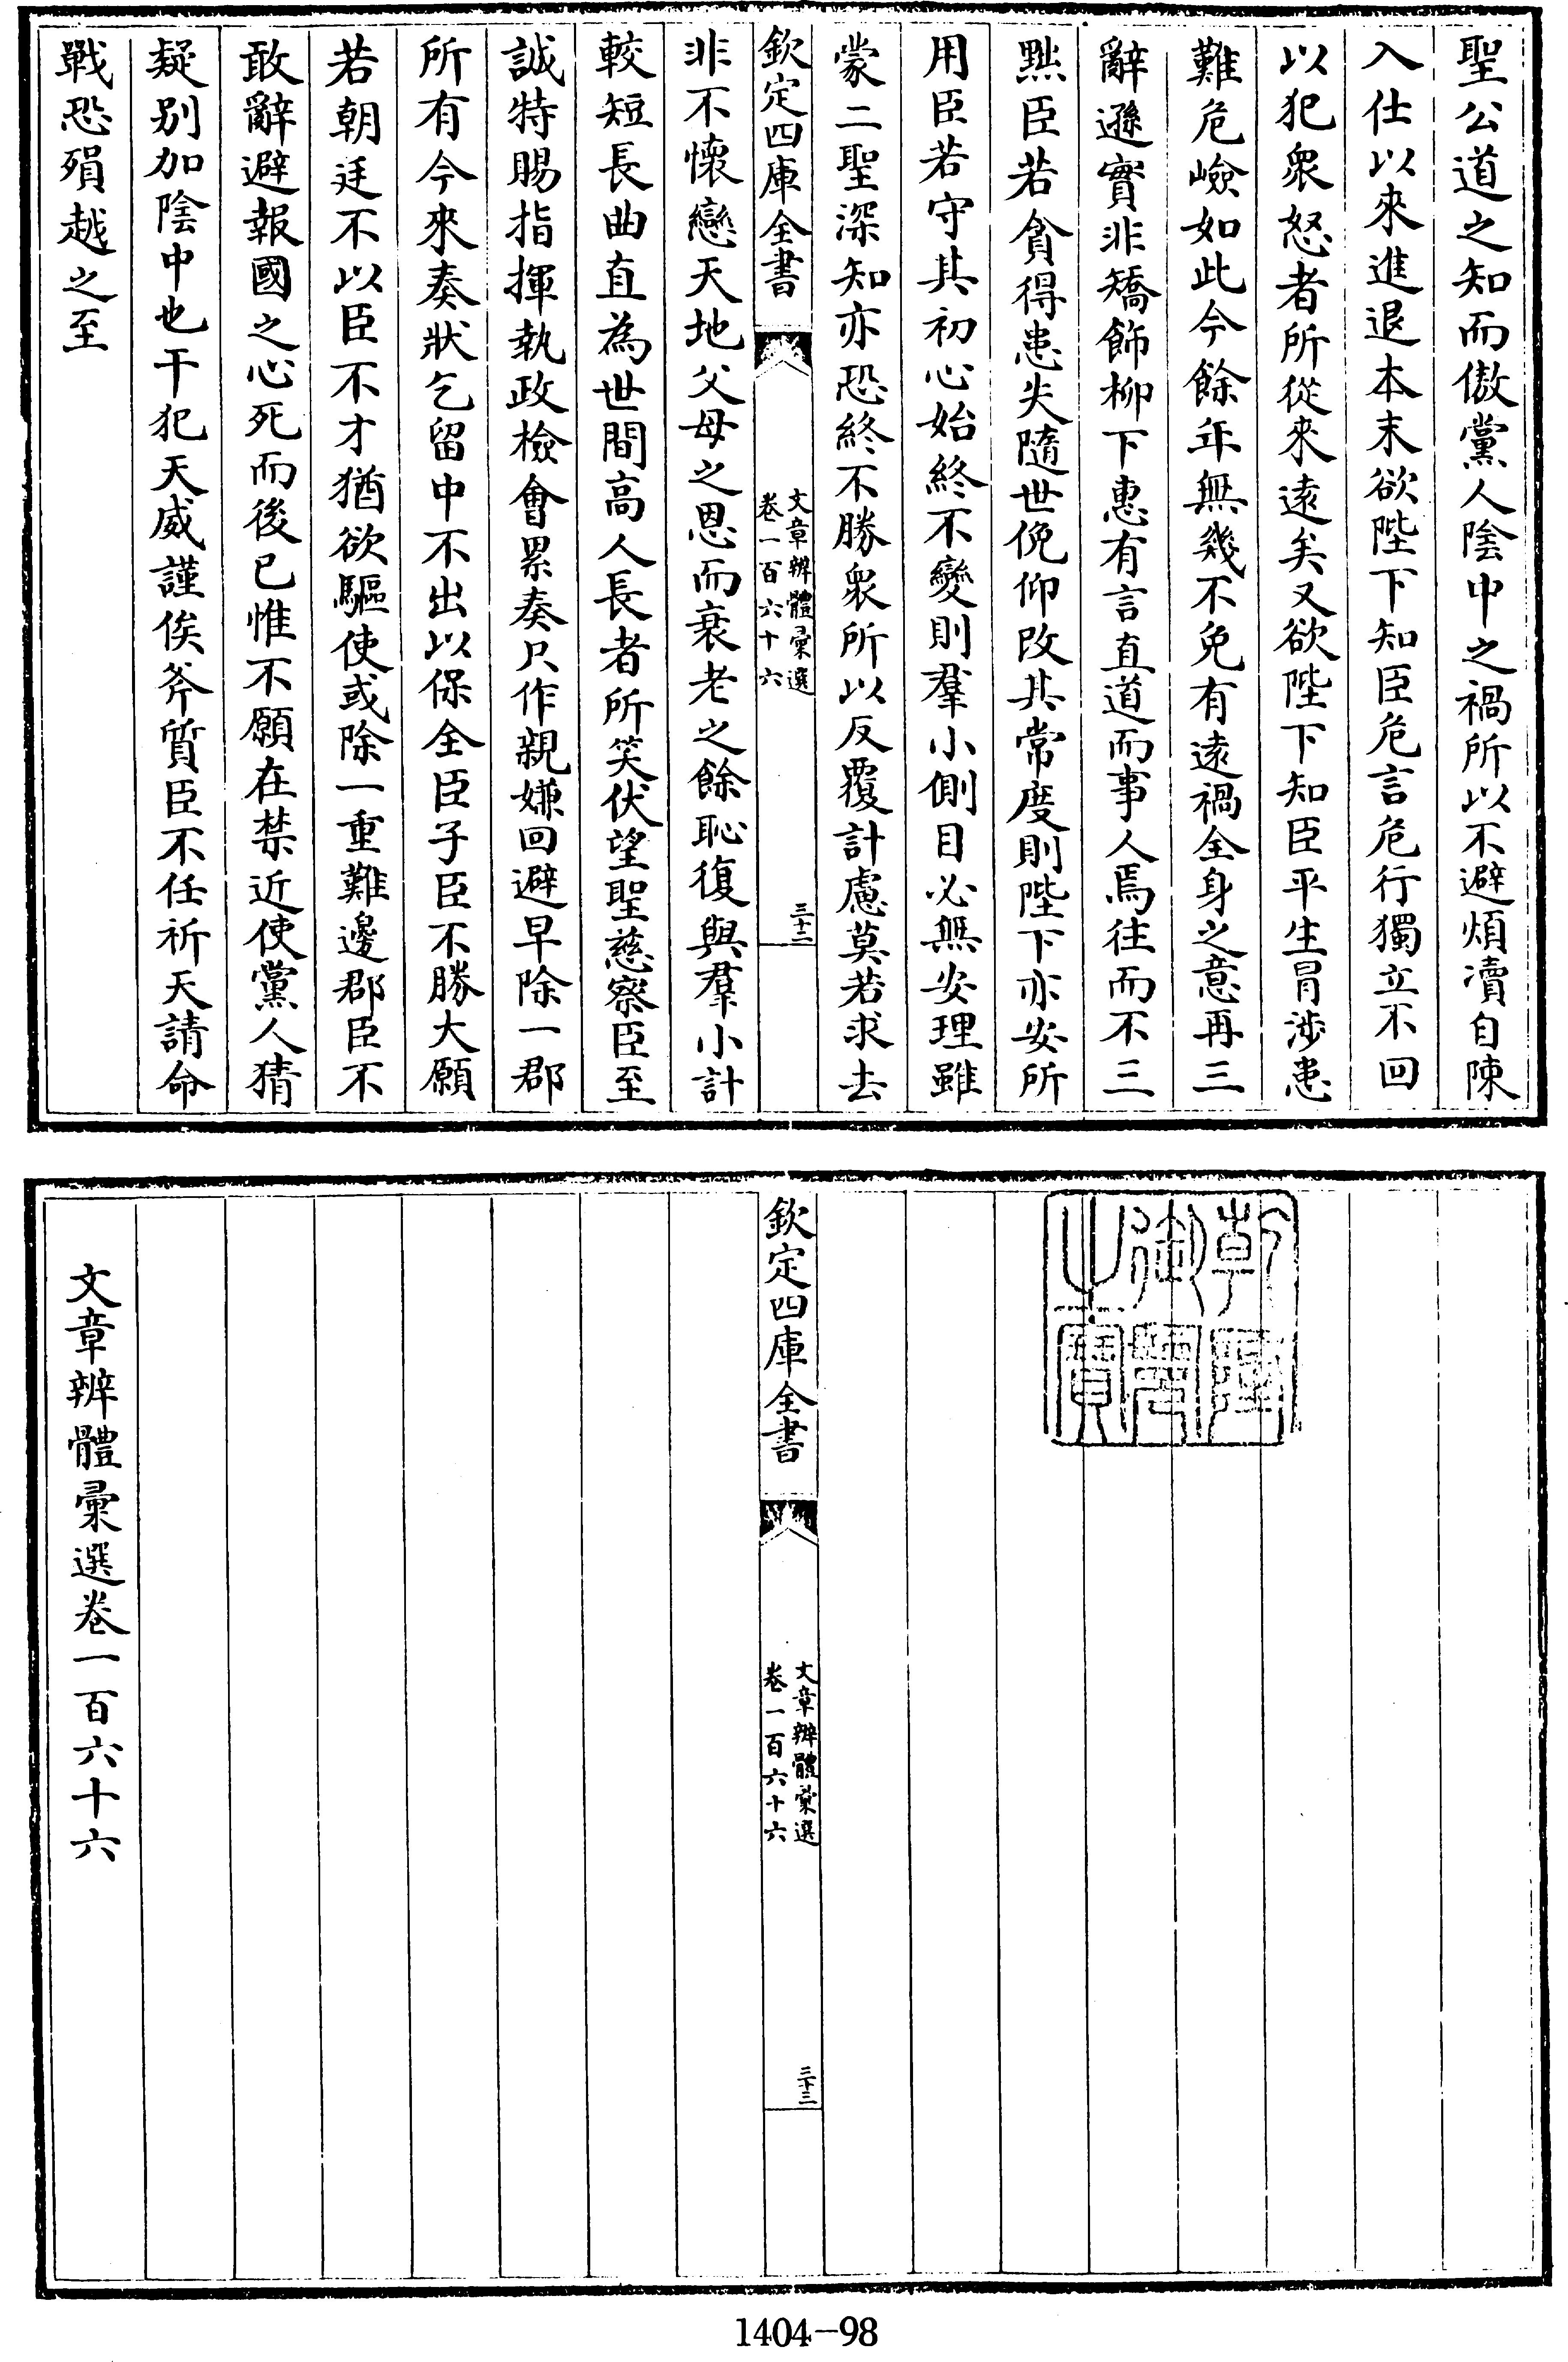 聖公道之知而傲黨人陰中之禍所以不避煩瀆自陳
入仕以來進退本末欲陛下知臣危言危行獨立不回
以犯衆怒者所從來遠矣又欲陛下知臣平生冒涉患
難危嶮如此今餘年無幾不免有遠禍全身之意再三
辭遜實非矯飾柳下惠有言直道而事人焉往而不三
黜臣若貪得患失隨世俛仰改其常度則陛下亦安所
用臣若守其初心始終不變則羣小側目必無安理雖
蒙二聖深知亦恐終不勝衆所以反覆計慮莫若求去
欽定四庫全書
文章辨體彙選
卷一百六十六
三十二
非不懷戀天地父母之恩而衰老之餘恥復與羣小計
較短長曲直為世間高人長者所笑伏望聖慈察臣至
誠特賜指揮執政檢會累奏只作親嫌回避早除一郡
所有今來奏狀乞留中不出以保全臣子臣不勝大願
若朝廷不以臣不才猶欲驅使或除一重難邊郡臣不
敢辭避報國之心死而後已惟不願在禁近使黨人猜
疑别加陰中也干犯天威謹俟斧質臣不任祈天請命
戰恐殞越之至
乾隆
御覽
之寶
欽定四庫全書
文章辨體彙選
卷一百六十六
三十三
文章辨體彙選卷一百六十六
1404-98